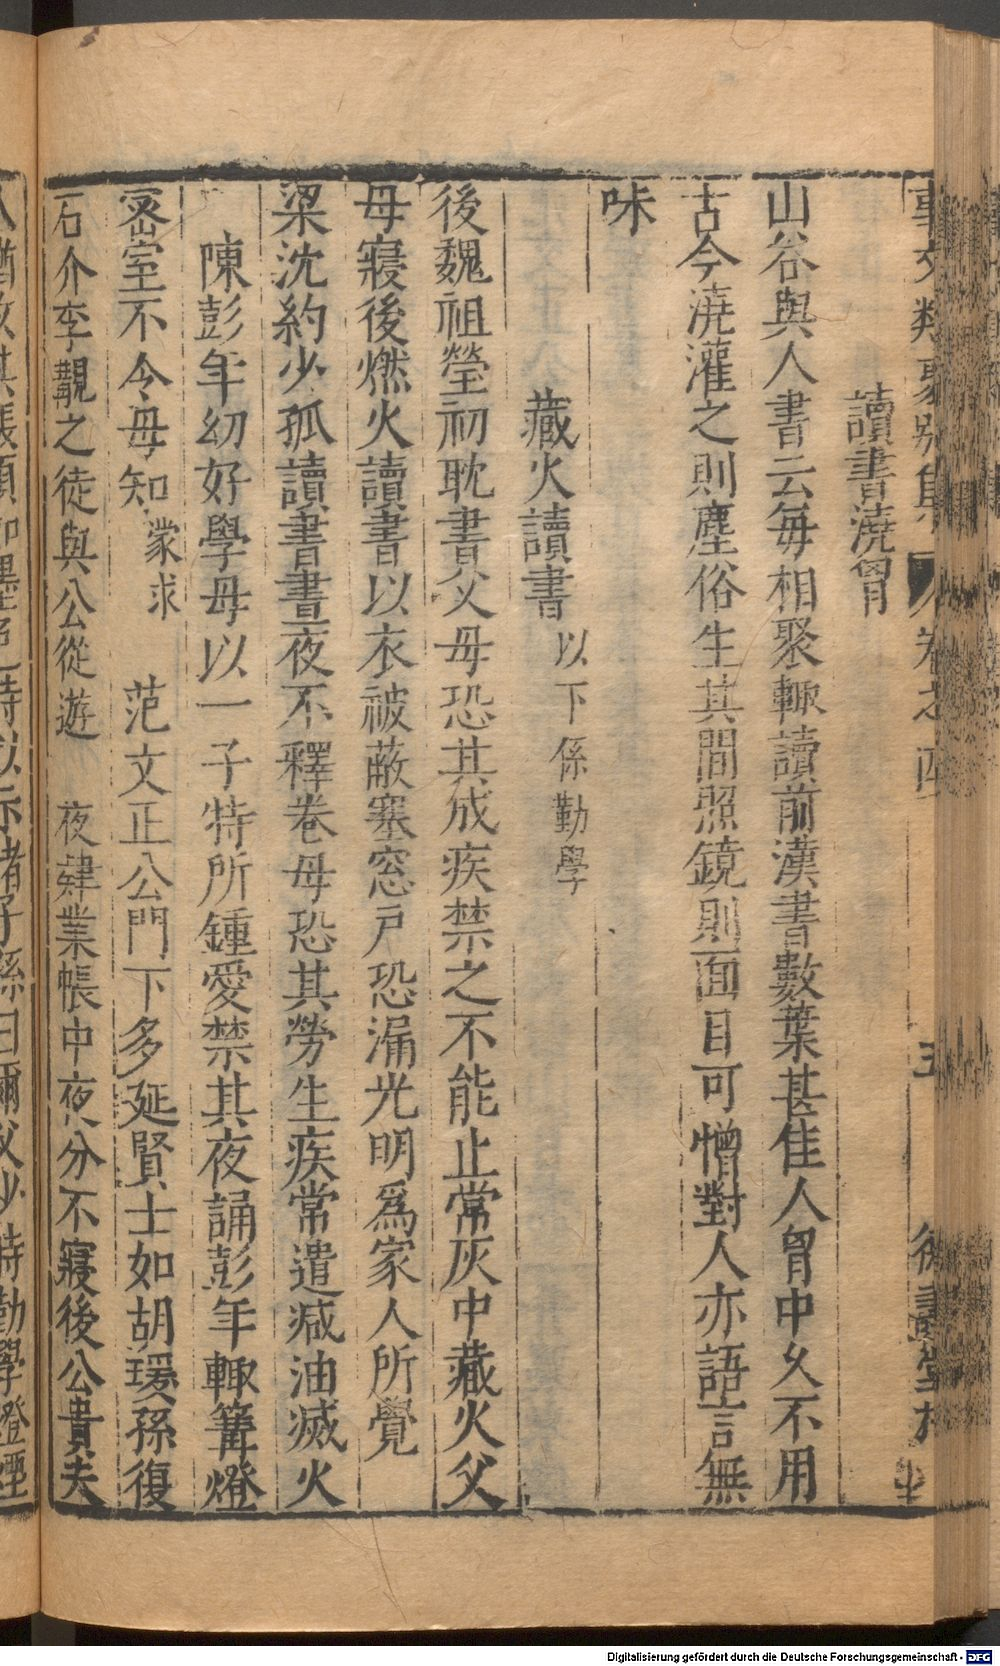 事文類聚別集 卷之四 五
讀書澆胷
山谷與人書云每相聚輒讀前漢書數葉甚佳人胷中久不用
古今澆灌之則塵俗生其間照鏡則面目可憎對人亦語言無
味
藏火讀書 以下係勤學
後魏祖瑩初耽書父母恐其成疾禁之不能止常灰中藏火父
母寢後燃火讀書以衣被蔽塞窓戶恐漏光明爲家人所覺
梁沈約少孤讀書晝夜不釋卷母恐其勞生疾常遣减油滅火
陳彭年幼好學母以一子特所鍾愛禁其夜誦彭年輒篝燈
宻室不令母知 蒙求 范文正公門下多延賢士如胡瑗孫復
石介李覯之徒與公從遊 夜肄業帳中夜分不寢後公貴夫
Digitalisierung gefördert durch die Deutsche Forschungsgemeinschaft - DFG